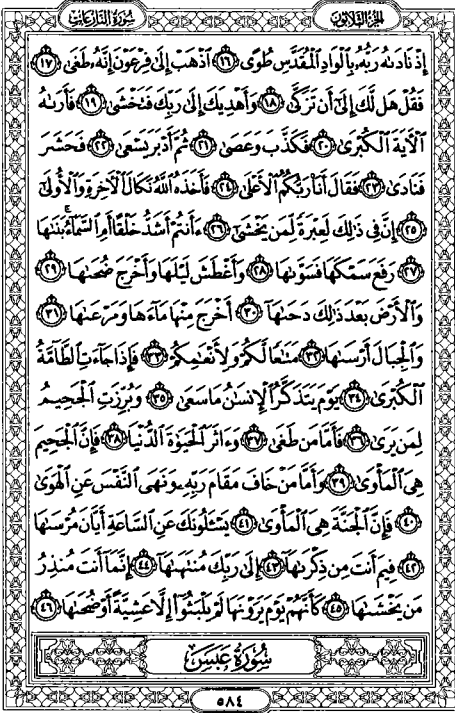 سُورَةُ النَّازِعَاتِ
الجُزْءُ الثَّلَاثُونَ
إِذْ نَادَىٰهُ رَبُّهُۥ بِٱلْوَادِ ٱلْمُقَدَّسِ طُوًى ١٦ ٱذْهَبْ إِلَىٰ فِرْعَوْنَ إِنَّهُۥ طَغَىٰ ١٧
فَقُلْ هَل لَّكَ إِلَىٰٓ أَن تَزَكَّىٰ ١٨ وَأَهْدِيَكَ إِلَىٰ رَبِّكَ فَتَخْشَىٰ ١٩ فَأَرَىٰهُ
ٱلْأٓيَةَ ٱلْكُبْرَىٰ ٢٠ فَكَذَّبَ وَعَصَىٰ ٢١ ثُمَّ أَدْبَرَ يَسْعَىٰ ٢٢ فَحَشَرَ
فَنَادَىٰ ٢٣ فَقَالَ أَنَا۠ رَبُّكُمُ ٱلْأَعْلَىٰ ٢٤ فَأَخَذَهُ ٱللَّهُ نَكَالَ ٱلْأٓخِرَةِ وَٱلْأُولَىٰٓ
٢٥ إِنَّ فِى ذَٰلِكَ لَعِبْرَةً لِّمَن يَخْشَىٰٓ ٢٦ ءَأَنتُمْ أَشَدُّ خَلْقًا أَمِ ٱلسَّمَآءُ ۚ بَنَىٰهَا
٢٧ رَفَعَ سَمْكَهَا فَسَوَّىٰهَا ٢٨ وَأَغْطَشَ لَيْلَهَا وَأَخْرَجَ ضُحَىٰهَا ٢٩
وَٱلْأَرْضَ بَعْدَ ذَٰلِكَ دَحَىٰهَآ ٣٠ أَخْرَجَ مِنْهَا مَآءَهَا وَمَرْعَىٰهَا ٣١
وَٱلْجِبَالَ أَرْسَىٰهَا ٣٢ مَتَٰعًا لَّكُمْ وَلِأَنْعَٰمِكُمْ ٣٣ فَإِذَا جَآءَتِ ٱلطَّآمَّةُ
ٱلْكُبْرَىٰ ٣٤ يَوْمَ يَتَذَكَّرُ ٱلْإِنسَٰنُ مَا سَعَىٰ ٣٥ وَبُرِّزَتِ ٱلْجَحِيمُ
لِمَن يَرَىٰ ٣٦ فَأَمَّا مَن طَغَىٰ ٣٧ وَءَاثَرَ ٱلْحَيَوٰةَ ٱلدُّنْيَا ٣٨ فَإِنَّ ٱلْجَحِيمَ
هِىَ ٱلْمَأْوَىٰ ٣٩ وَأَمَّا مَنْ خَافَ مَقَامَ رَبِّهِۦ وَنَهَى ٱلنَّفْسَ عَنِ ٱلْهَوَىٰ
٤٠ فَإِنَّ ٱلْجَنَّةَ هِىَ ٱلْمَأْوَىٰ ٤١ يَسْـَٔلُونَكَ عَنِ ٱلسَّاعَةِ أَيَّانَ مُرْسَىٰهَا
٤٢ فِيمَ أَنتَ مِن ذِكْرَىٰهَآ ٤٣ إِلَىٰ رَبِّكَ مُنتَهَىٰهَآ ٤٤ إِنَّمَآ أَنتَ مُنذِرُ
مَن يَخْشَىٰهَا ٤٥ كَأَنَّهُمْ يَوْمَ يَرَوْنَهَا لَمْ يَلْبَثُوٓا۟ إِلَّا عَشِيَّةً أَوْ ضُحَىٰهَا ٤٦
سُورَةُ عَبَسَ
٥٨٤